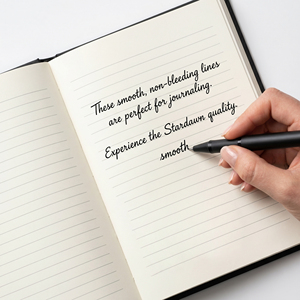 These smooth, non-bleeding lines
are perfect for journaling.
Experience the Stardawn quality.
smooth